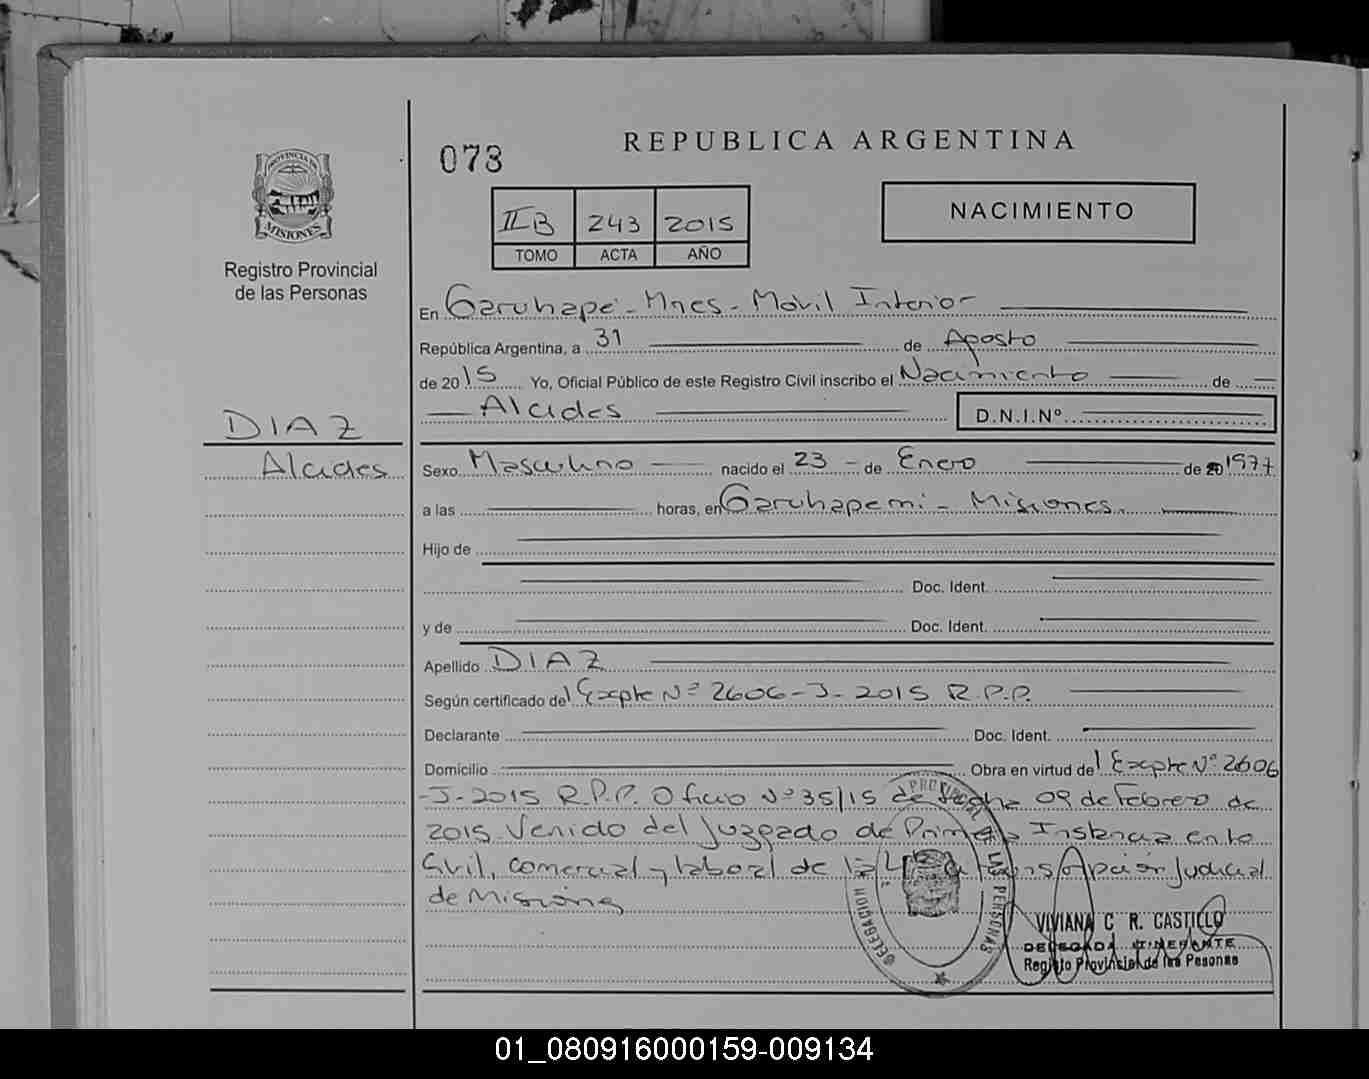 073
REPUBLICA ARGENTINA
PROVINCIA DE
MISIONES
Registro Provincial
de las Personas
NACIMIENTO
IIB 243 2015
TOMO ACTA AÑO
En Garuhapé - Mnes - Movil Interior
República Argentina, a 31 de Agosto
de 2015 Yo, Oficial Público de este Registro Civil inscribo el Nacimiento de
Alcides D.N.I.Nº
DIAZ
Alcides
Sexo Masculino nacido el 23 - de Enero de 20 1977
a las horas, en Garuhapemi - Misiones.
Hijo de
Doc. Ident.
y de Doc. Ident.
Apellido DIAZ
Según certificado del Expte Nº 2606-J-2015 R.P.P.
Declarante Doc. Ident.
Domicilio Obra en virtud del Expte Nº 2606
-J-2015 R.P.P. Oficio Nº 35/15 de fecha 09 de Febrero de
2015 Venido del Juzgado de Primera Instancia en lo
Civil, comercial y laboral de la 4 Judicial
de Misiones
PROVINCIAL DE LAS PERSONAS
DELEGACION
VIVIANA C R. CASTILLO
DELEGADA ITINERANTE
Registo Provincial de las Pesonas
01_080916000159-009134